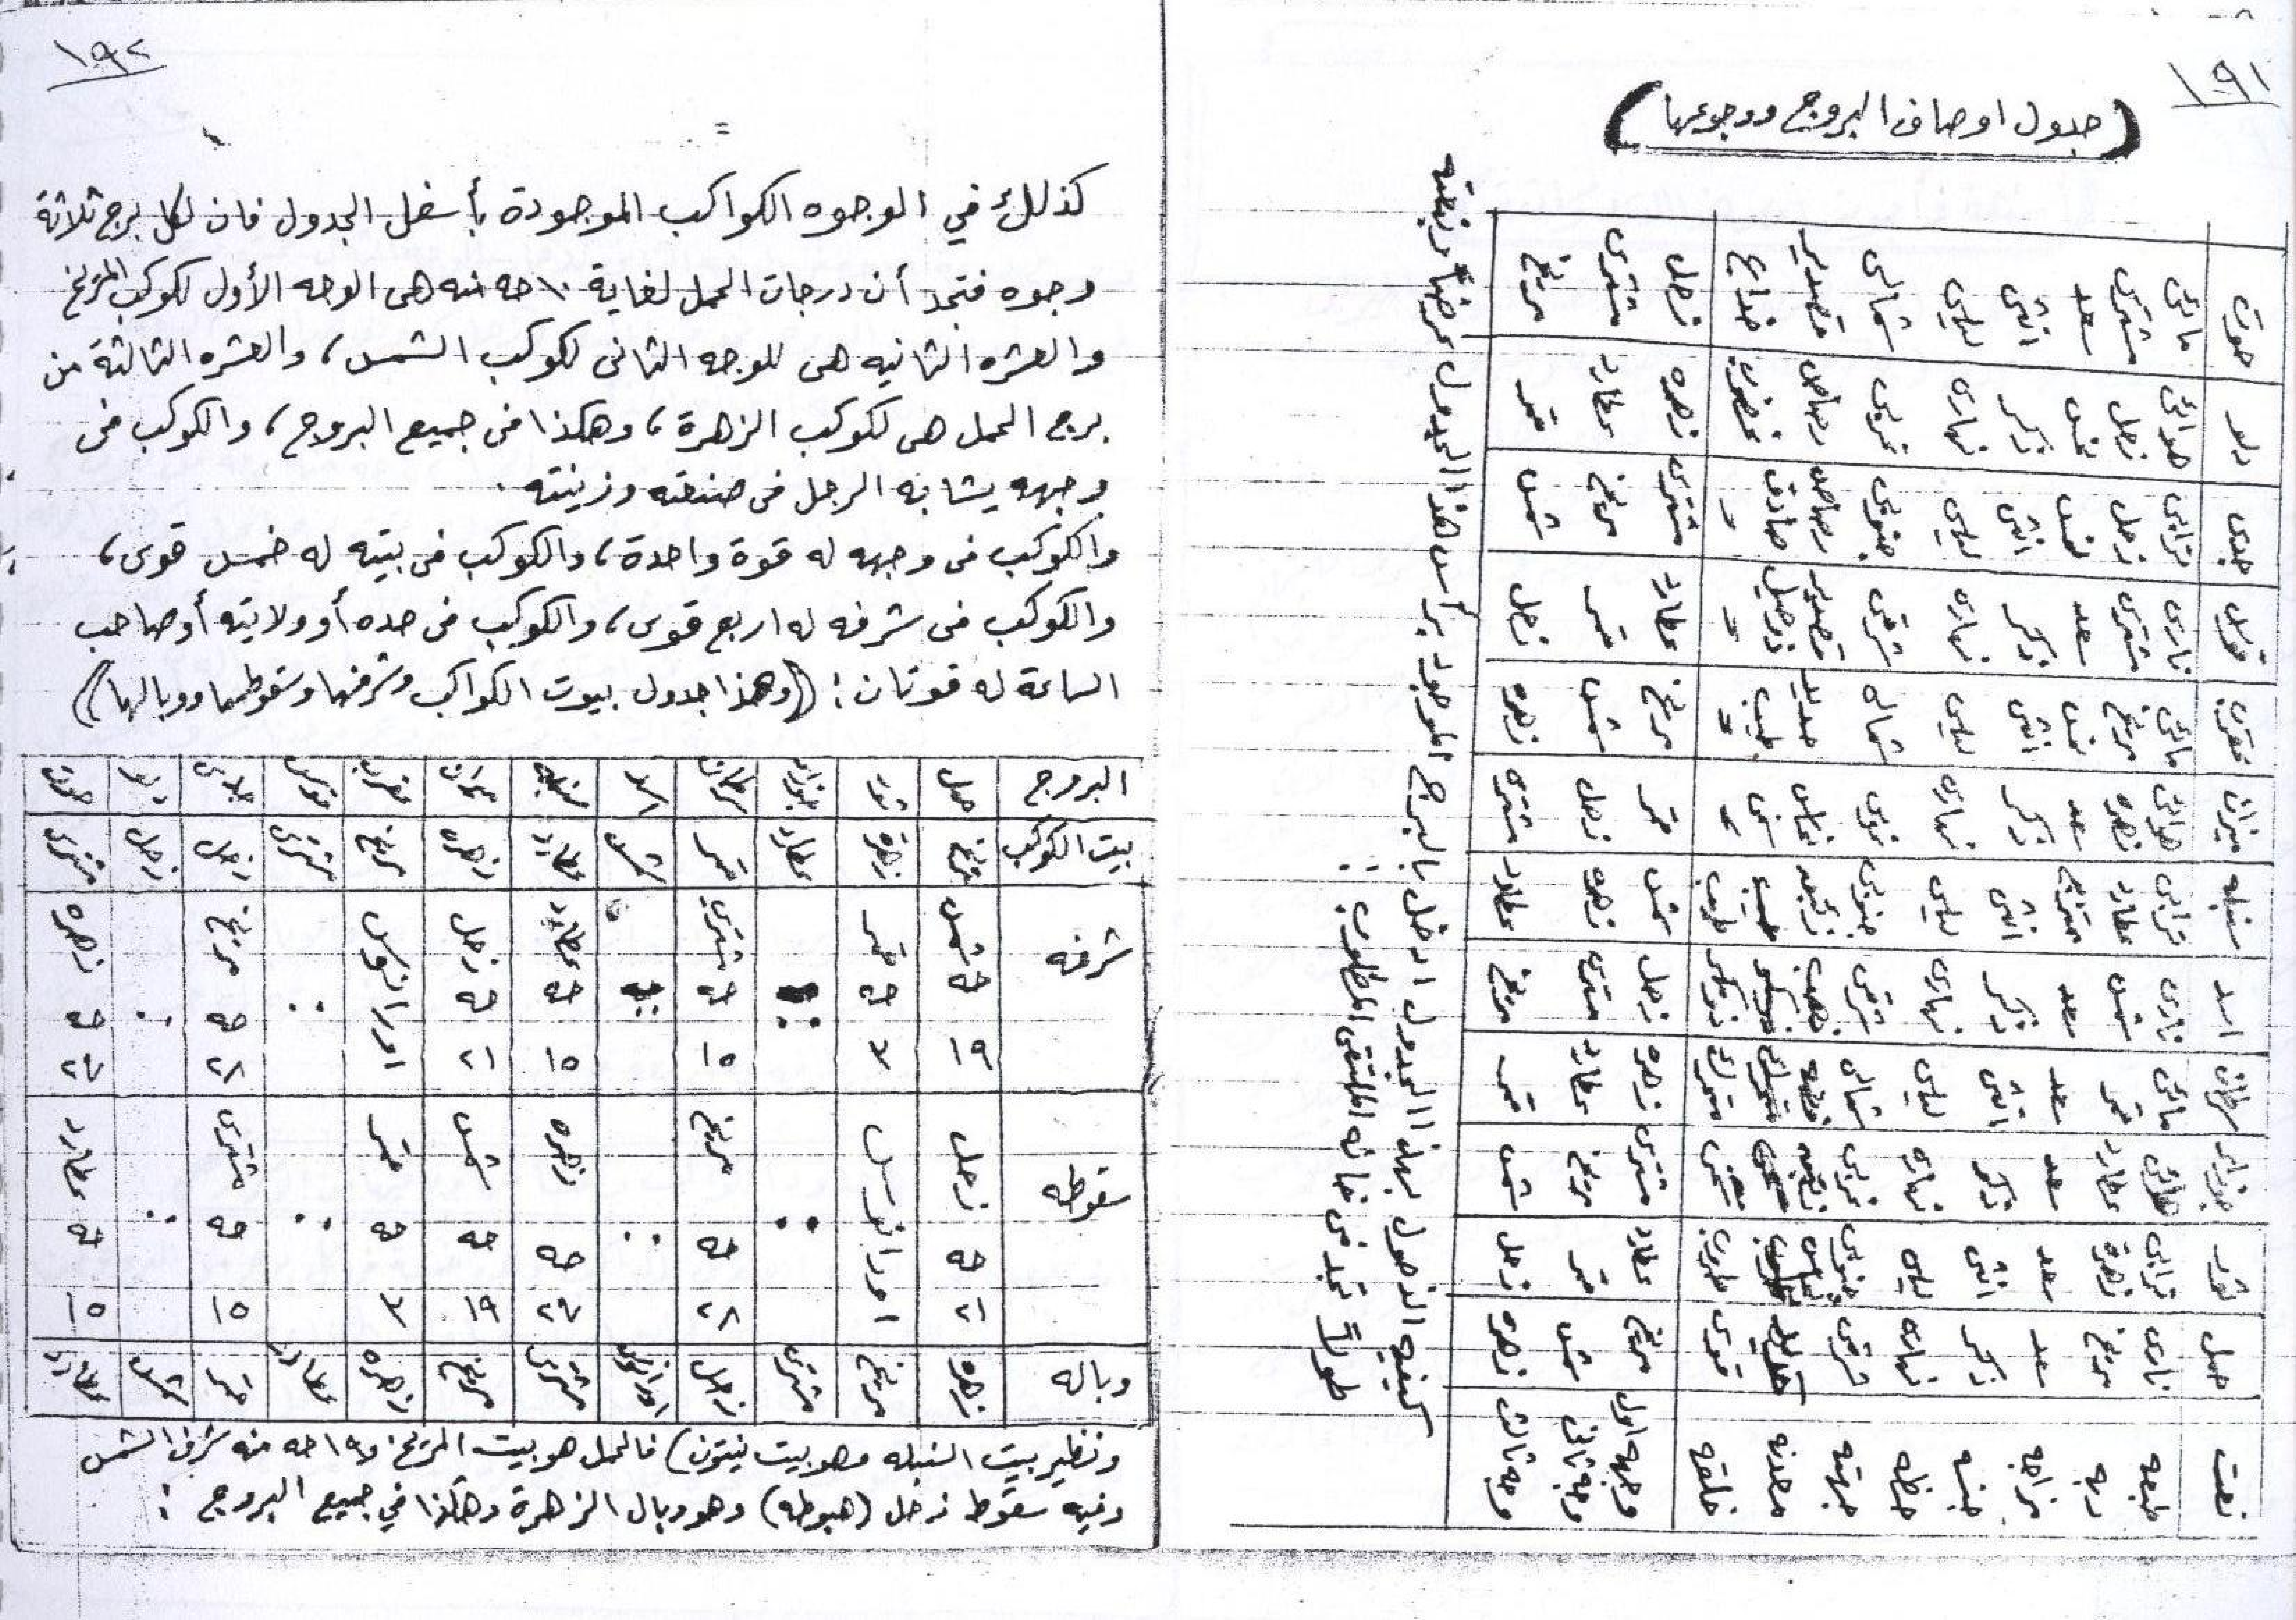 ١٩١
(جدول اوصاف البروج ووجوعها)
نعت | حمل | ثور | جوزاء | سرطان | اسد | سنبله | ميزان | عقرب | قوس | جدى | دلو | حوت
طبعه | نارى | ترابى | هوائى | مائى | نارى | ترابى | هوائى | مائى | نارى | ترابى | هوائى | مائى
ربه | مريخ | زهره | عطارد | قمر | شمس | عطارد | زهره | مريخ | مشترى | زحل | زحل | مشترى
مزاجه | سعد | سعد | سعد | سعد | سعد | ممتزج | سعد | نحس | سعد | نحس | نحس | سعد
جنسه | ذكر | انثى | ذكر | انثى | ذكر | انثى | ذكر | انثى | ذكر | انثى | ذكر | انثى
حظه | نهارى | ليلى | نهارى | ليلى | نهارى | ليلى | نهارى | ليلى | نهارى | ليلى | نهارى | ليلى
جهته | شرقى | جنوبى | غربى | شمالى | شرقى | جنوبى | شمالى | شرقى | جنوبى | غربى | شمالى
معدنه | حديد | نحاس | زئبقه | فضه | ذهب | نحاس | حديد | قصدير | رصاص | رصاص | قصدير
خلقه | قوى | طروب | متحرك | طروب | طيب | صادق | خداع
وجهه اول | مريخ | عطارد | مشترى | زهره | زحل | شمس | قمر | مريخ | عطارد | مشترى | زهره | زحل
وجه ثانى | شمس | قمر | مريخ | عطارد | مشترى | زهره | زحل | شمس | قمر | مريخ | عطارد | مشترى
وجه ثالث | زهره | زحل | شمس | قمر | مريخ | عطارد | مشترى | زهره | زحل | شمس | قمر | مريخ
كيفيه الدخول بهذا الجدول ادخل بالبرج الموجود برأس هذا الجدول عرضاً ونعته
طولاً تجد فى خانه الملتقى المطلوب :
١٩٢
كذلك في الوجوه الكواكب الموجودة بأسفل الجدول فان لكل برج ثلاثة
وجوه فتجد أن درجات الحمل لغاية ١٠ حه منه هى الوجه الأول لكوكب المريخ
والعشره الثانيه هى للوجه الثانى لكوكب الشمس، والعشره الثالثة من
برج الحمل هى لكوكب الزهرة، وهكذا فى جميع البروج، والكوكب فى
وجهه يشابه الرجل فى صنعته وزينته .
والكوكب فى وجهه له قوة واحدة، والكوكب فى بيته له خمس قوى،
والكوكب فى شرفه له اربع قوى، والكوكب فى حده أو ولايته أو صاحب
الساعة له قوتان : ((وهذا جدول بيوت الكواكب وشرفها وسقوطها ووبالها))
البروج | حمل | ثور | جوزاء | سرطان | اسد | سنبله | ميزان | عقرب | قوس | جدى | دلو | حوت
بيت الكوكب | مريخ | زهره | عطارد | قمر | شمس | عطارد | زهره | مريخ | مشترى | زحل | زحل | مشترى
شرفه | شمس حه ١٩ | قمر حه ٣ | .. | مشترى حه ١٥ | .. | عطارد حه ١٥ | زحل حه ٢١ | اورانوس | .. | مريخ حه ٢٨ | .. | زهره حه ٢٧
سقوطه | زحل حه ٢١ | اورانوس | .. | مريخ حه ٢٨ | .. | زهره حه ٢٧ | شمس حه ١٩ | قمر حه ٣ | .. | مشترى حه ١٥ | .. | عطارد حه ١٥
وباله | زهره | مريخ | مشترى | زحل | اورانوس | مشترى | مريخ | زهره | عطارد | قمر | شمس | عطارد
ونظير بيت السنبله وهو بيت نبتون) فالحمل هو بيت المريخ و١٩ حه منه شرف الشمس
وفيه سقوط زحل (هبوطه) وهو وبال الزهرة وهكذا في جميع البروج :